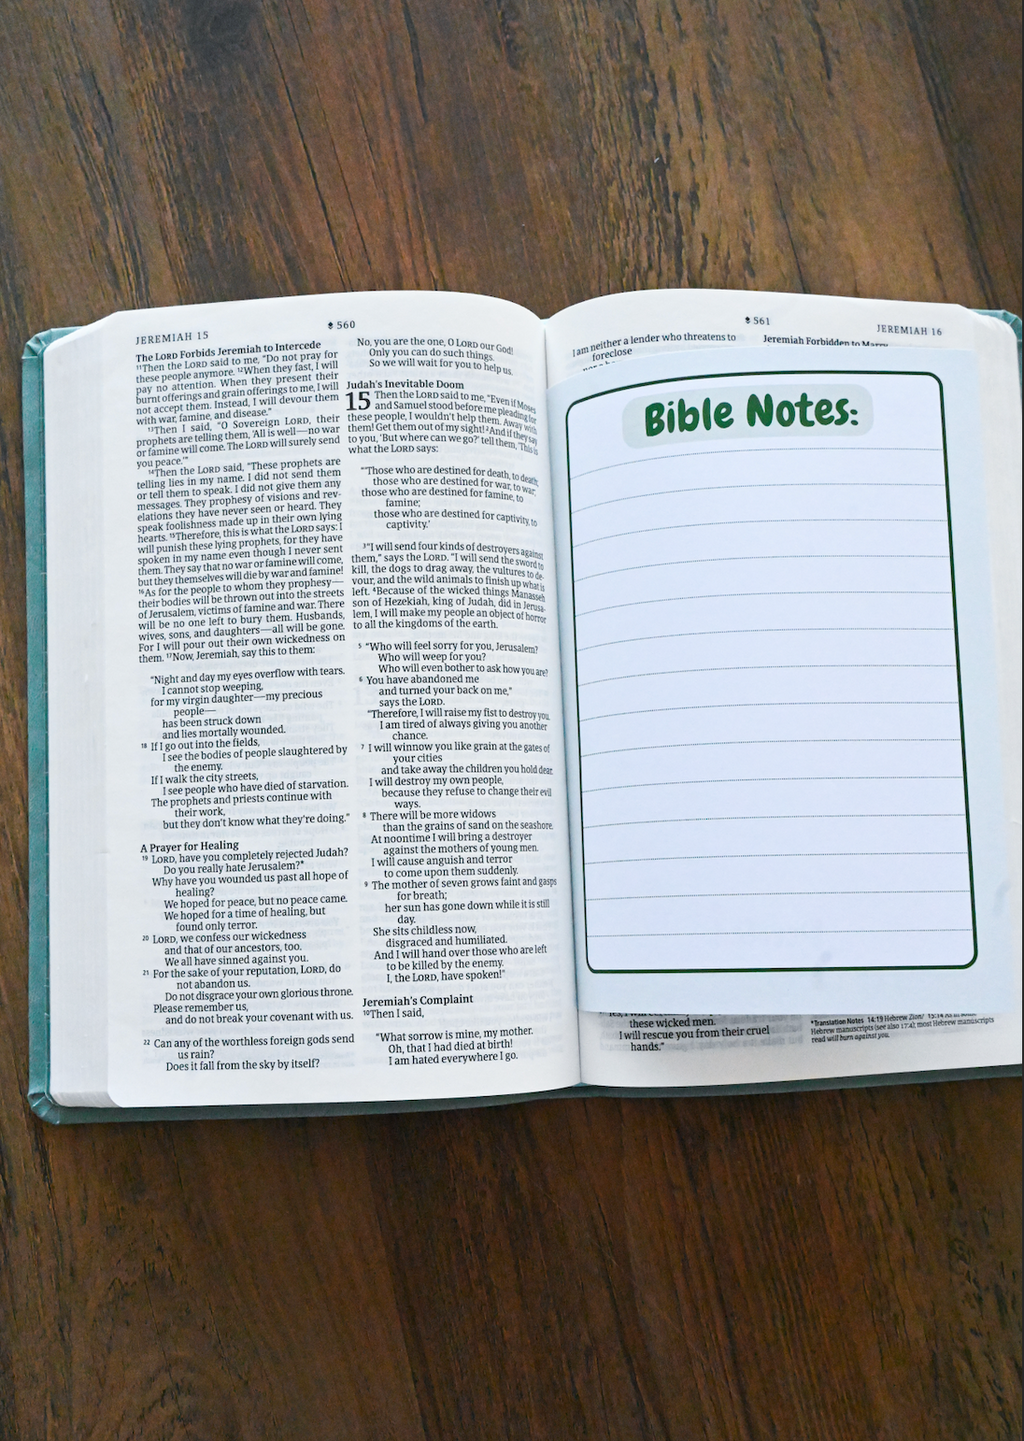 JEREMIAH 15
560
The LORD Forbids Jeremiah to Intercede
11Then the LORD said to me, “Do not pray for
these people anymore. 12When they fast, I will
pay no attention. When they present their
burnt offerings and grain offerings to me, I will
not accept them. Instead, I will devour them
with war, famine, and disease.”
13Then I said, “O Sovereign LORD, their
prophets are telling them, ‘All is well—no war
or famine will come. The LORD will surely send
you peace.’”
14Then the LORD said, “These prophets are
telling lies in my name. I did not send them
or tell them to speak. I did not give them any
messages. They prophesy of visions and rev-
elations they have never seen or heard. They
speak foolishness made up in their own lying
hearts. 15Therefore, this is what the LORD says: I
will punish these lying prophets, for they have
spoken in my name even though I never sent
them. They say that no war or famine will come,
but they themselves will die by war and famine!
16As for the people to whom they prophesy—
their bodies will be thrown out into the streets
of Jerusalem, victims of famine and war. There
will be no one left to bury them. Husbands,
wives, sons, and daughters—all will be gone.
For I will pour out their own wickedness on
them. 17Now, Jeremiah, say this to them:
“Night and day my eyes overflow with tears.
I cannot stop weeping,
for my virgin daughter—my precious
people—
has been struck down
and lies mortally wounded.
18 If I go out into the fields,
I see the bodies of people slaughtered by
the enemy.
If I walk the city streets,
I see people who have died of starvation.
The prophets and priests continue with
their work,
but they don’t know what they’re doing.”
A Prayer for Healing
19 LORD, have you completely rejected Judah?
Do you really hate Jerusalem?*
Why have you wounded us past all hope of
healing?
We hoped for peace, but no peace came.
We hoped for a time of healing, but
found only terror.
20 LORD, we confess our wickedness
and that of our ancestors, too.
We all have sinned against you.
21 For the sake of your reputation, LORD, do
not abandon us.
Do not disgrace your own glorious throne.
Please remember us,
and do not break your covenant with us.
22 Can any of the worthless foreign gods send
us rain?
Does it fall from the sky by itself?
No, you are the one, O LORD our God!
Only you can do such things.
So we will wait for you to help us.
Judah’s Inevitable Doom
15 Then the LORD said to me, “Even if Moses
and Samuel stood before me pleading for
these people, I wouldn’t help them. Away with
them! Get them out of my sight! 2And if they say
to you, ‘But where can we go?’ tell them, ‘This is
what the LORD says:
“‘Those who are destined for death, to death;
those who are destined for war, to war;
those who are destined for famine, to
famine;
those who are destined for captivity, to
captivity.’
3“I will send four kinds of destroyers against
them,” says the LORD. “I will send the sword to
kill, the dogs to drag away, the vultures to de-
vour, and the wild animals to finish up what is
left. 4Because of the wicked things Manasseh
son of Hezekiah, king of Judah, did in Jerusa-
lem, I will make my people an object of horror
to all the kingdoms of the earth.
5 “Who will feel sorry for you, Jerusalem?
Who will weep for you?
Who will even bother to ask how you are?
6 You have abandoned me
and turned your back on me,”
says the LORD.
“Therefore, I will raise my fist to destroy you.
I am tired of always giving you another
chance.
7 I will winnow you like grain at the gates of
your cities
and take away the children you hold dear.
I will destroy my own people,
because they refuse to change their evil
ways.
8 There will be more widows
than the grains of sand on the seashore.
At noontime I will bring a destroyer
against the mothers of young men.
I will cause anguish and terror
to come upon them suddenly.
9 The mother of seven grows faint and gasps
for breath;
her sun has gone down while it is still
day.
She sits childless now,
disgraced and humiliated.
And I will hand over those who are left
to be killed by the enemy.
I, the LORD, have spoken!”
Jeremiah’s Complaint
10Then I said,
“What sorrow is mine, my mother.
Oh, that I had died at birth!
I am hated everywhere I go.
561
JEREMIAH 16
I am neither a lender who threatens to
foreclose
Jeremiah Forbidden to Marry
Bible Notes:
these wicked men.
I will rescue you from their cruel
hands.”
*Translation Notes 14:19 Hebrew Zion? 15:14
Hebrew manuscripts (see also 17:4); most Hebrew manuscripts
read will burn against you.